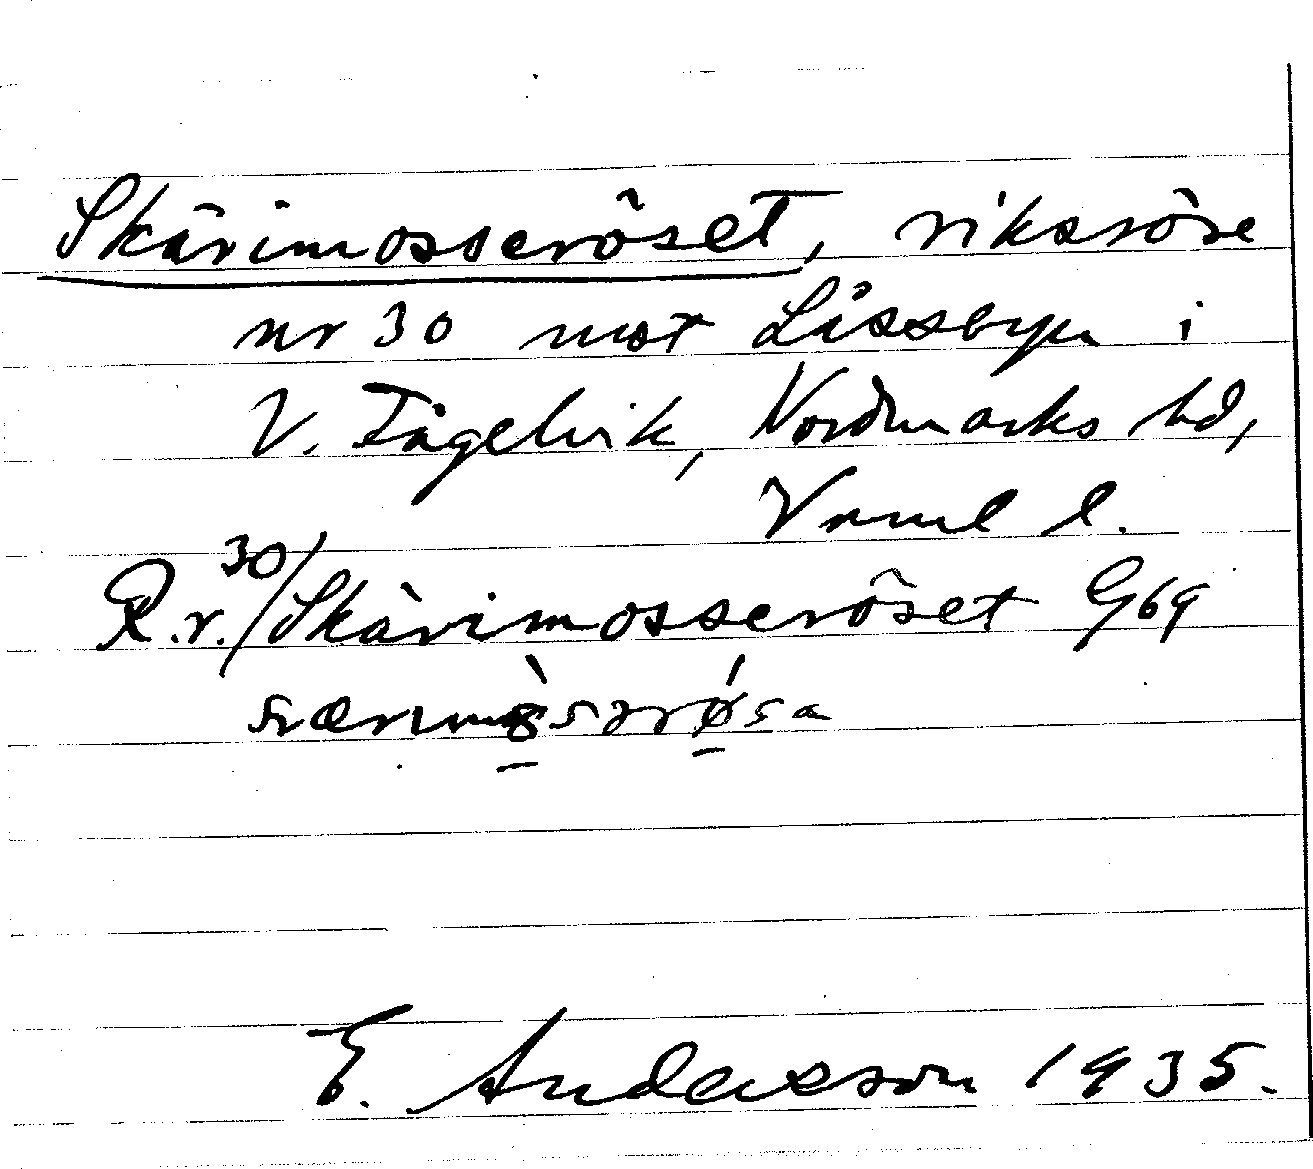 Skärimosseröset, riksröse
nr 30 mot Låssbyn i
V. Fågelvik, Nordmarks hd,
Vrml l.
R.r. 30/Skärimosseröset G69
E. Andersson 1935.